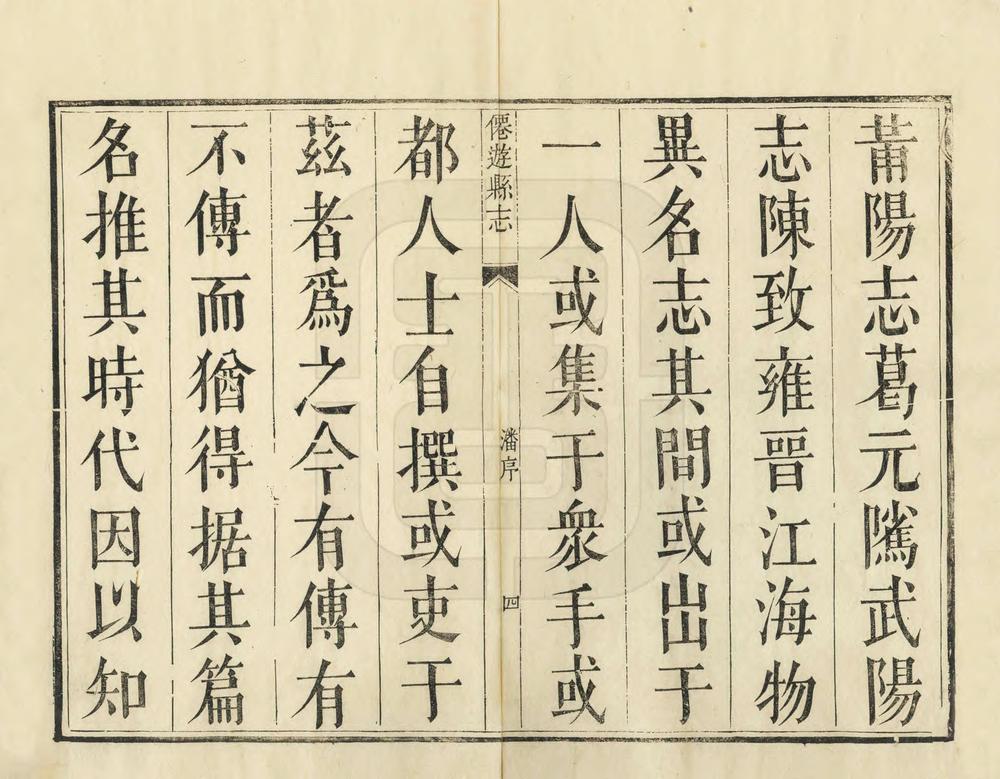 莆陽志葛元隲武陽
志陳致雍晉江海物
異名志其間或出于
一人或集于衆手或
僊遊縣志
潘序
四
都人士自撰或吏于
茲者爲之今有傳有
不傳而猶得据其篇
名推其時代因以知